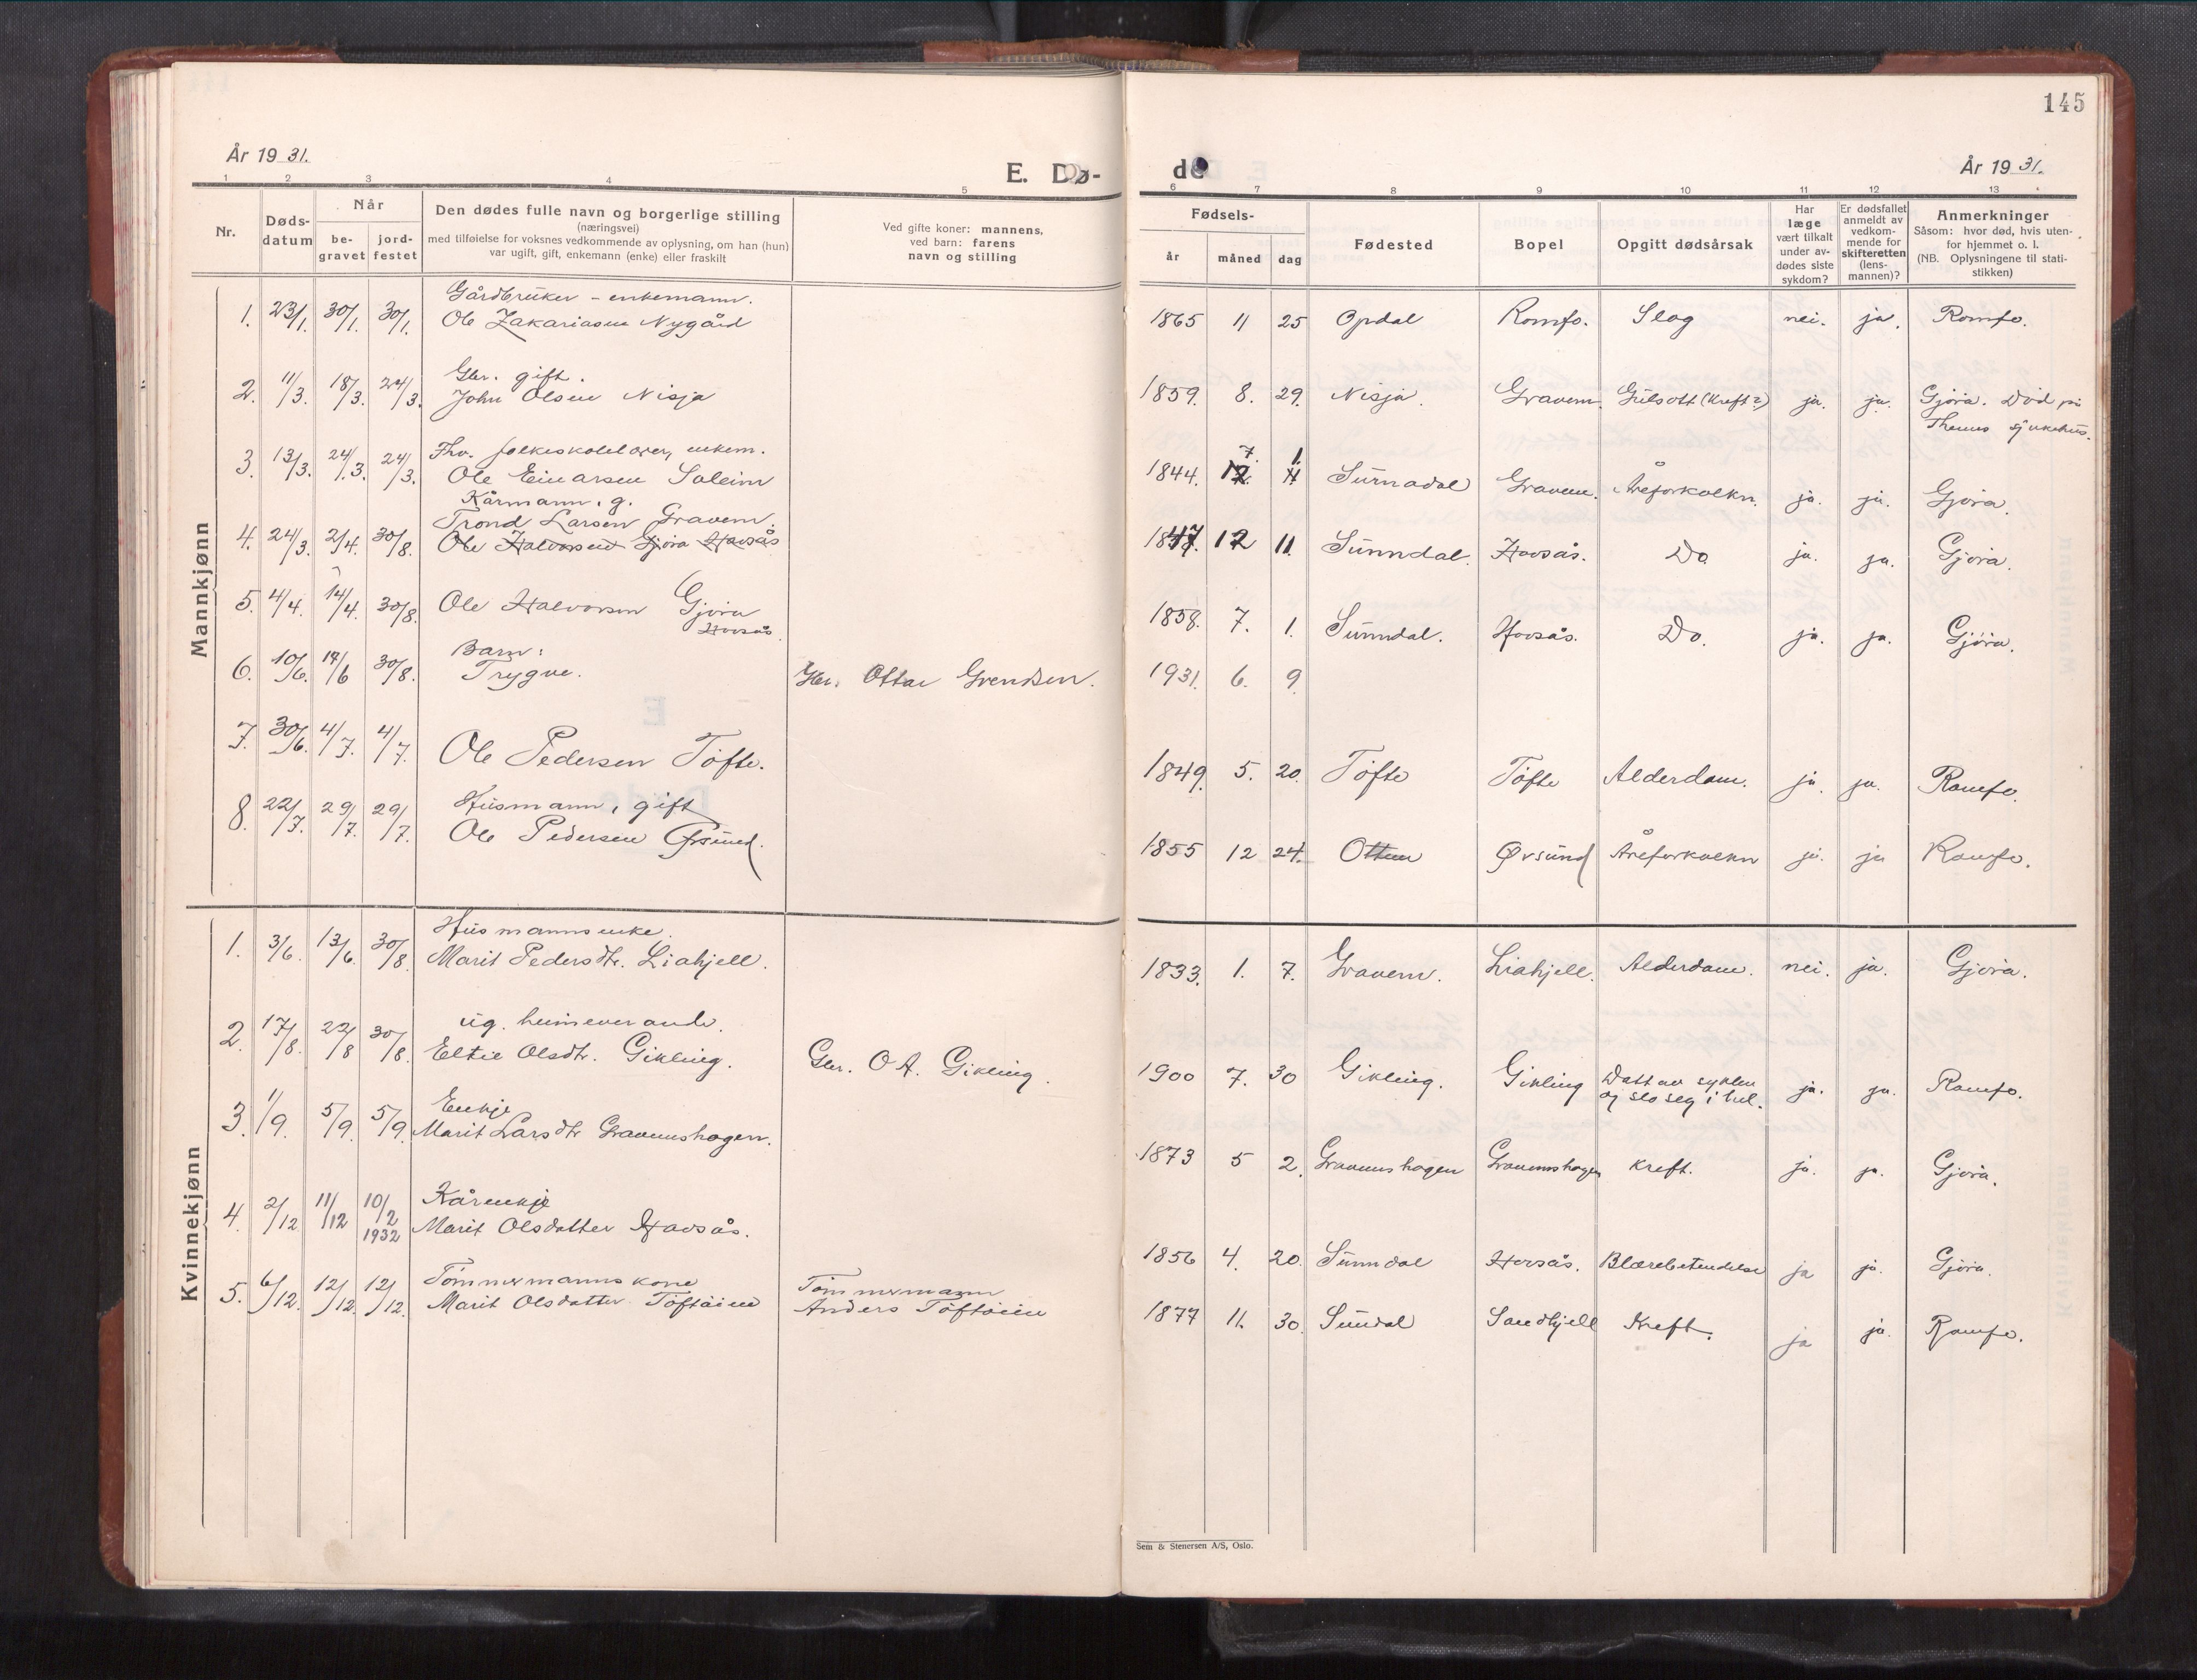 145
År 19 31.
E. Dø-
de
År 19 31.
1 2 3 4 5 6 7 8 9 10 11 12 13
Nr.
Døds-
datum
Når
be-
gravet
jord-
festet
Den dødes fulle navn og borgerlige stilling
(næringsvei)
med tilføielse for voksnes vedkommende av oplysning, om han (hun)
var ugift, gift, enkemann (enke) eller fraskilt
Ved gifte koner: mannens,
ved barn: farens
navn og stilling
Fødsels-
år måned dag
Fødested
Bopel
Opgitt dødsårsak
Har
læge
vært tilkalt
under av-
dødes siste
sykdom?
Er dødsfallet
anmeldt av
vedkom-
mende for
skifteretten
(lens-
mannen)?
Anmerkninger
Såsom: hvor død, hvis uten-
for hjemmet o. l.
(NB. Oplysningene til stati-
stikken)
Mannkjønn
Gårdbruker - enkemann.
1. 23/1. 30/1. 30/1. Ole Zakariasen Nygård 1865 11 25 Opdal Romfo. Slag nei. ja. Romfo.
Gbr. gift.
2. 11/3. 18/3. 24/3. John Olsen Nisja 1859. 8. 29. Nisja. Gravem. Gulsott (kreft?) ja. ja. Gjøra. Død på
sjukehus.
Fhv. folkeskolelærer, enkem.
7. 1.
3. 13/3. 24/3. 24/3. Ole Einarsen Soleim 1844. 12 11 Surnadal Gravem. Åreforkalkn. ja. ja. Gjøra.
Kårmann, g.
Trond Larsen Gravem.
4. 24/3. 2/4. 30/8. Ole Halvorsen Gjøra Hovsås 1847. 12 11. Sunndal. Hovsås. Do ja. ja. Gjøra.
5. 4/4. 14/4. 30/8. Ole Halvorsen Gjøra 1858. 7. 1. Sunndal. Hovsås. Do. ja. ja. Gjøra.
Hovsås.
Barn:
6. 10/6. 17/6 30/8. Trygve. Gbr. Ottar Grendsen. 1931. 6. 9.
7. 30/6. 4/7. 4/7. Ole Pedersen Tøfte. 1849. 5. 20. Tøfte Tøfte Alderdom. ja. ja. Romfo.
Husmann, gift
8. 22/7. 29/7. 29/7. Ole Pedersen Ørsund. 1855 12 24. Ottem Ørsund Åreforkalkn ja. ja Romfo.
Kvinnekjønn
Husmannsenke.
1. 3/6. 13/6. 30/8. Marit Pedersdtr. Liahjell. 1833. 1. 7. Gravem. Liahjell. Alderdom. nei. ja. Gjøra.
ug. heimeverande.
2. 17/8. 22/8 30/8. Eltie Olsdtr. Gikling. Gbr. O A. Gikling. 1900 7. 30 Gikling. Gikling Datt av sykkel ja. ja. Romfo.
og slo seg i hel.
Enkje
3. 1/9. 5/9. 5/9. Marit Larsdtr Gravemshagen. 1873 5 2. Gravemshagen Gravemshagen kreft. ja. ja. Gjøra.
Kårenkje
4. 2/12. 11/12 10/2 1932 Marit Olsdatter Hovsås. 1856 4. 20. Sunndal Hovsås. Blærebetendelse ja ja. Gjøra.
Tømmermannskone Tømmermann
5. 6/12. 12/12. 12/12. Marit Olsdatter Tøftøien Anders Tøftøien 1877 11. 30. Sundal Sandhjell Kreft. ja ja. Romfo.
Sem & Stenersen A/S, Oslo.